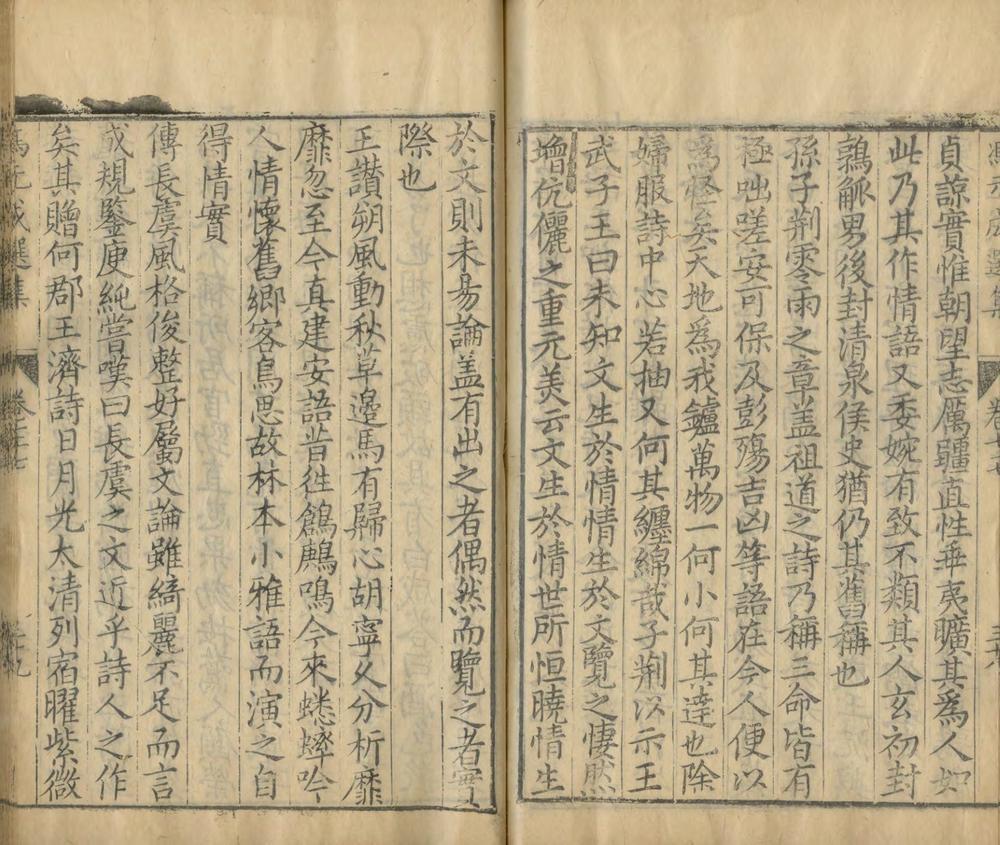 貞諒實惟朝望志厲疆直性乖夷曠其爲人如
此乃其作情語又委婉有致不類其人玄初封
鶉觚男後封清泉侯史猶仍其舊稱也
孫子荆零雨之章盖祖道之詩乃稱三命皆有
極咄嗟安可保及彭殤吉凶等語在今人便以
爲怪矣天地爲我鑪萬物一何小何其達也除
婦服詩中心若抽又何其纏綿哉子荆以示王
武子王曰未知文生於情情生於文覽之悽然
增伉儷之重元美云文生於情世所恒曉情生
於文則未易論盖有出之者偶然而覽之者實
際也
王讃朔風動秋草邊馬有歸心胡寧久分析靡
靡忽至今真建安語昔徃鶬鶊鳴今來蟋蟀吟
人情懷舊鄉客鳥思故林本小雅語而演之自
得情實
傳長虞風格俊整好屬文論雖綺麗不足而言
成規鑒庾純嘗嘆曰長虞之文近乎詩人之作
矣其贈何郡王濟詩日月光太清列宿曜紫微
馮元成選集 卷之七